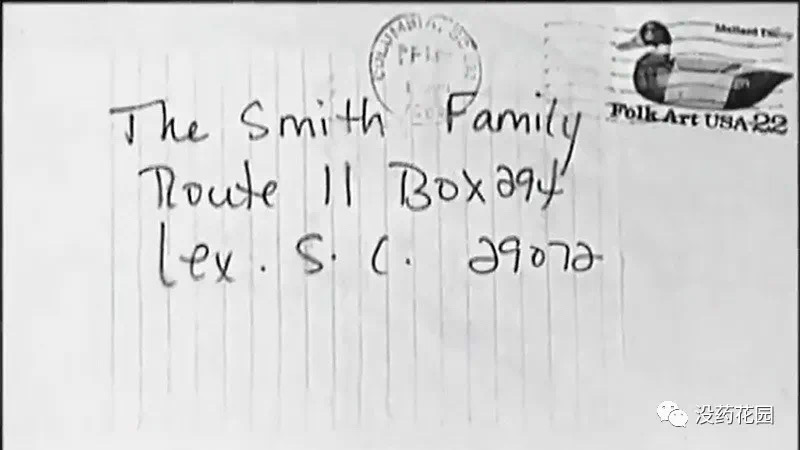 COLUMBIA, SC
PM
Mallard
Folk Art USA 22
The Smith Family
Route 11 Box 294
Lex. S. C. 29072
没药花园